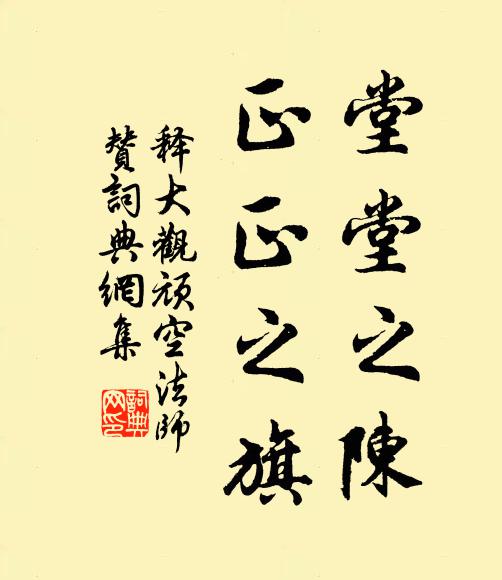 堂堂之陳
正正之旗
释大觀頑空法師
贊詞典網集
詞典网印